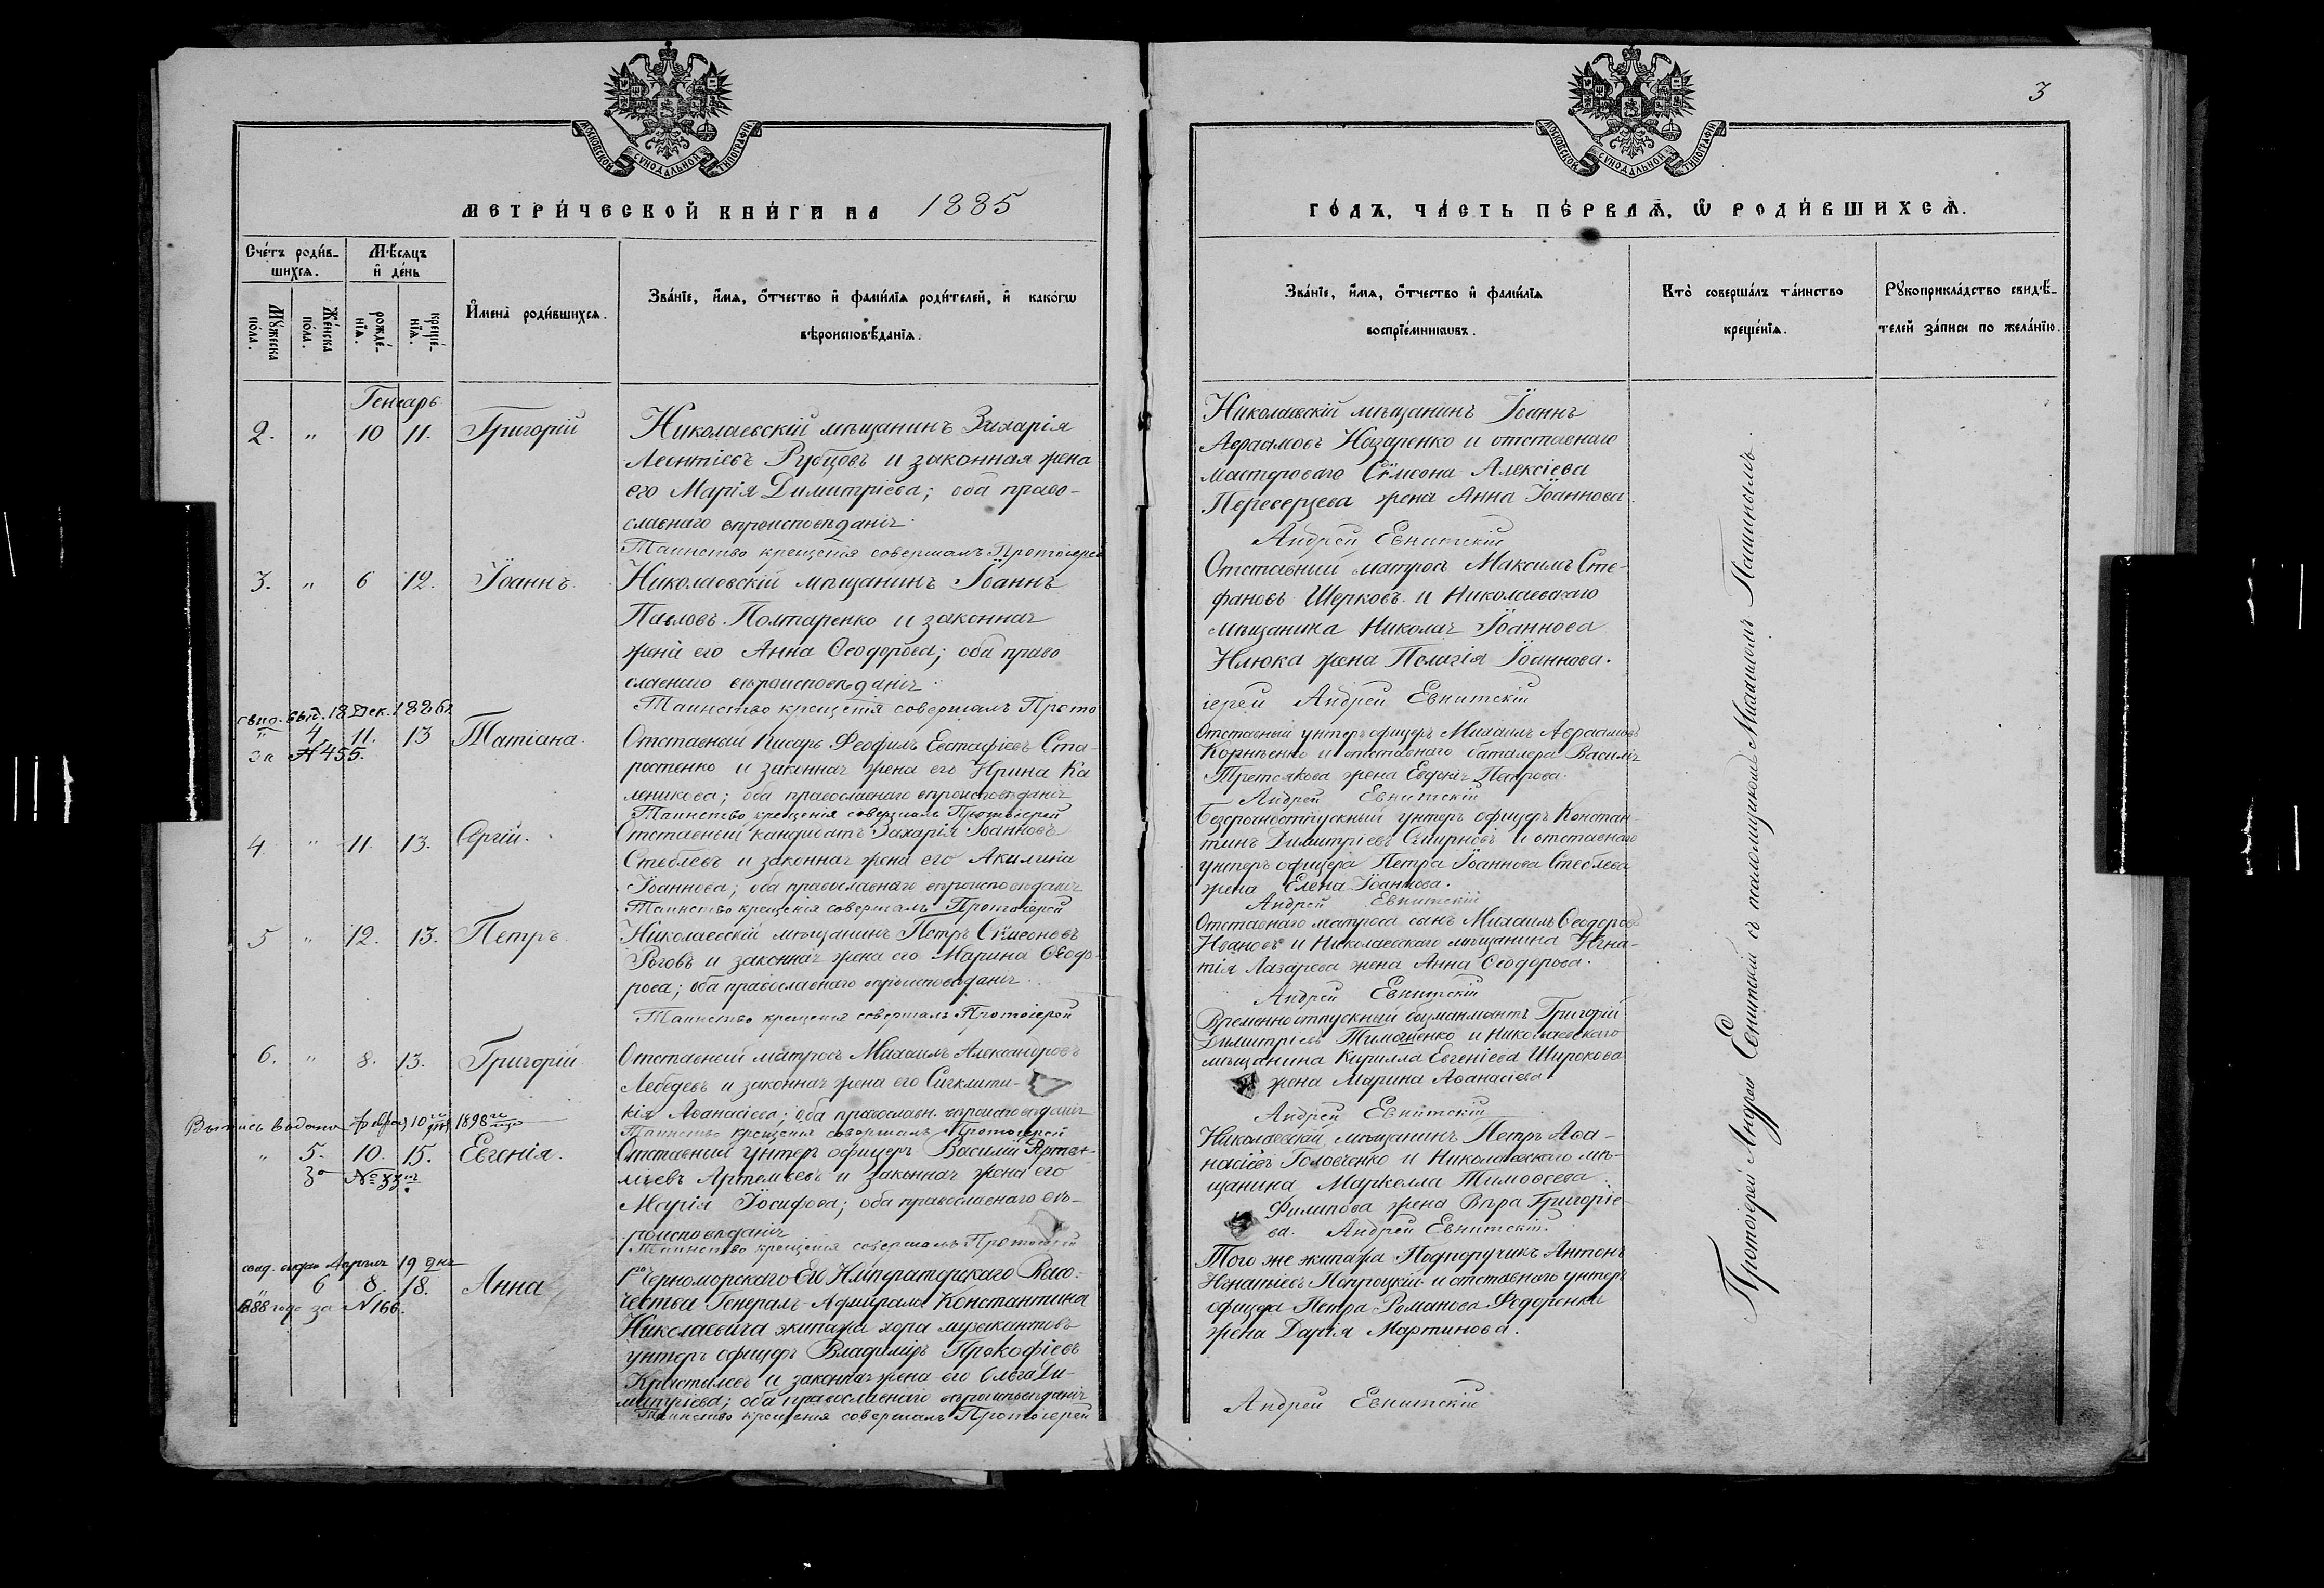 МОСКОВСКОЙ СѴНОДАЛЬНОЙ ТИПОГРАФІИ
МЕТРИ́ЧЕСКОЙ КНИ́ГИ НА 1885
Сче́тъ роди́в-
шихсѧ.
Мѣ́сѧцъ
и҆ де́нь
Мꙋ́жеска
по́ла.
Же́нска
по́ла.
рожде́-
нїѧ.
креще́-
нїѧ.
И҆мена̀ роди́вшихсѧ.
Зва́нїе, и҆́мѧ, ѻ҆́тчество и҆ фами́лїѧ роди́телей, и҆ како́гѡ
вѣроисповѣ́данїѧ.
Генварь
2. " 10 11. Григорій
Николаевскій мѣщанинъ Захарія
Леонтіевъ Рубцовъ и законная жена
его Марія Димитріева; оба право-
славнаго вѣроисповѣданія.
Таинство крещенія совершалъ Протоіерей
3. " 6 12. Іоаннъ.
Николаевскій мѣщанинъ Іоаннъ
Павловъ Полтаренко и законная
жена его Анна Ѳеодорова; оба право
славнаго вѣроисповѣданія.
Таинство крещенія совершалъ Прото
свид. выд. 18 Дек.
" 4. 11. 13 Татіана.
за № 455.
Отставный писарь Феофилъ Евстафіевъ Ста-
ростенко и законная жена его Ирина Ка
леникова; оба православнаго вѣроисповѣданія
Таинство крещенія совершалъ Протоіерей
4 " 11. 13. Сергій.
Отставный кандидатъ Захарія Іоанновъ
Стеблевъ и законная жена его Акилина
Іоаннова; оба православнаго вѣроисповѣданія
Таинство крещенія совершалъ Протоіерей
5 " 12. 13. Петръ.
Николаевскій мѣщанинъ Петръ Симеоновъ
Роговъ и законная жена его Марина Ѳеодо-
рова; оба православнаго вѣроисповѣданія.
Таинство крещенія совершалъ Протоіерей
6. " 8. 13. Григорій
Отставный матросъ Михаилъ Александровъ
Лебедевъ и законная жена его Сигклити-
кія Аѳанасіева; оба православн. вѣроисповѣданія
Таинство крещенія совершалъ Протоіерей
Выпись выдана февр. 10 дня 1898 года
" 5. 10. 15. Евгенія.
за №
Отставный унтеръ офицеръ Василій Артем-
мьевъ Артемьевъ и законная жена его
Марія Іосифова; оба православнаго вѣ-
роисповѣданія
Таинство крещенія совершалъ Протоіерей
свид. выдан Апрѣля 19 дня
" 6 8. 18. Анна
1888 года за № 166.
1го Черноморскаго Его Императорскаго Высо-
чества Генералъ-Адмирала Константина
Николаевича экипажа хора музыкантовъ
унтеръ офицеръ Владиміръ Прокофіевъ
и законная жена его Ольга Ди-
митріева; оба православнаго вѣроисповѣданія
Таинство крещенія совершалъ Протоіерей
3
МОСКОВСКОЙ СѴНОДАЛЬНОЙ ТИПОГРАФІИ
ГО́ДЪ, ЧА́СТЬ ПЕ́РВАѦ, Ѡ҆ РОДИ́ВШИХСѦ.
Зва́нїе, и҆́мѧ, ѻ҆́тчество и҆ фами́лїѧ
воспрїе́мникѡвъ.
Кто̀ соверша́лъ та́инство
креще́нїѧ.
Рꙋкоприкла́дство свидѣ́-
телей за́писи по жела́нїю.
Николаевскій мѣщанинъ Іоаннъ
Авраамовъ Назаренко и отставнаго
мастероваго Симеона Алексіева
Переверзева жена Анна Іоаннова.
Андрей Евнитскій
Отставный матросъ Максимъ Сте-
фановъ Шерковъ и Николаевскаго
мѣщанина Николая Іоаннова
Илюка жена Пелагія Іоаннова.
іерей Андрей Евнитскій
Отставный унтеръ офицеръ Михаилъ Авраамовъ
Корнѣенко и отставнаго баталера Василія
Третьякова жена Евдокія Петрова.
Андрей Евнитскій
Безсрочноотпускный унтеръ офицеръ Констан
тинъ Димитріевъ Смирновъ и отставнаго
унтеръ офицера Петра Іоаннова Стеблева
жена Елена Іоаннова.
Андрей Евнитскій
Отставнаго матроса сынъ Михаилъ Ѳеодоровъ
Ивановъ и Николаевскаго мѣщанина Игна-
тія Лазарева жена Анна Ѳеодорова.
Андрей Евнитскій
Временноотпускный боцманматъ Григорій
Димитріевъ Тимошенко и Николаевскаго
мѣщанина Кирилла Евгеніева Широкова
жена Марина Аѳанасіева
Андрей Евнитскій
Николаевскій мѣщанинъ Петръ Аѳа-
насіевъ Головченко и Николаевскаго мѣ-
щанина Маркелла Тимоѳеева
Филипова жена Вѣра Григоріе-
ва. Андрей Евнитскій.
Того же экипажа Подпоручикъ Антонъ
Игнатіевъ и отставнаго унтеръ
офицера Петра Романова Федоренка
жена Дарія Мартинова.
Андрей Евнитскій
Протоіерей Андрей Евнитскій съ псаломщикомъ Михаиломъ Пашинымъ.